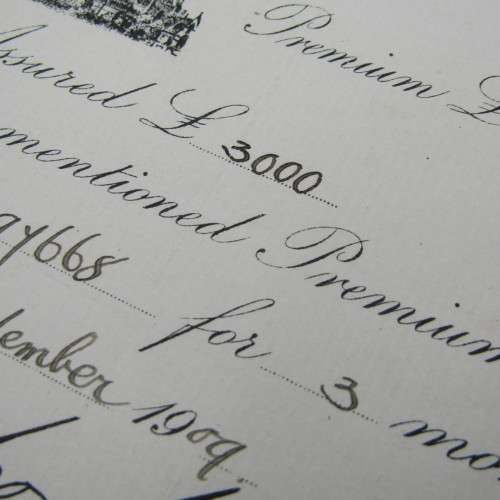 Premium £
Assured £ 3000
mentioned Premium
97668 for 3 mo
tember 1909